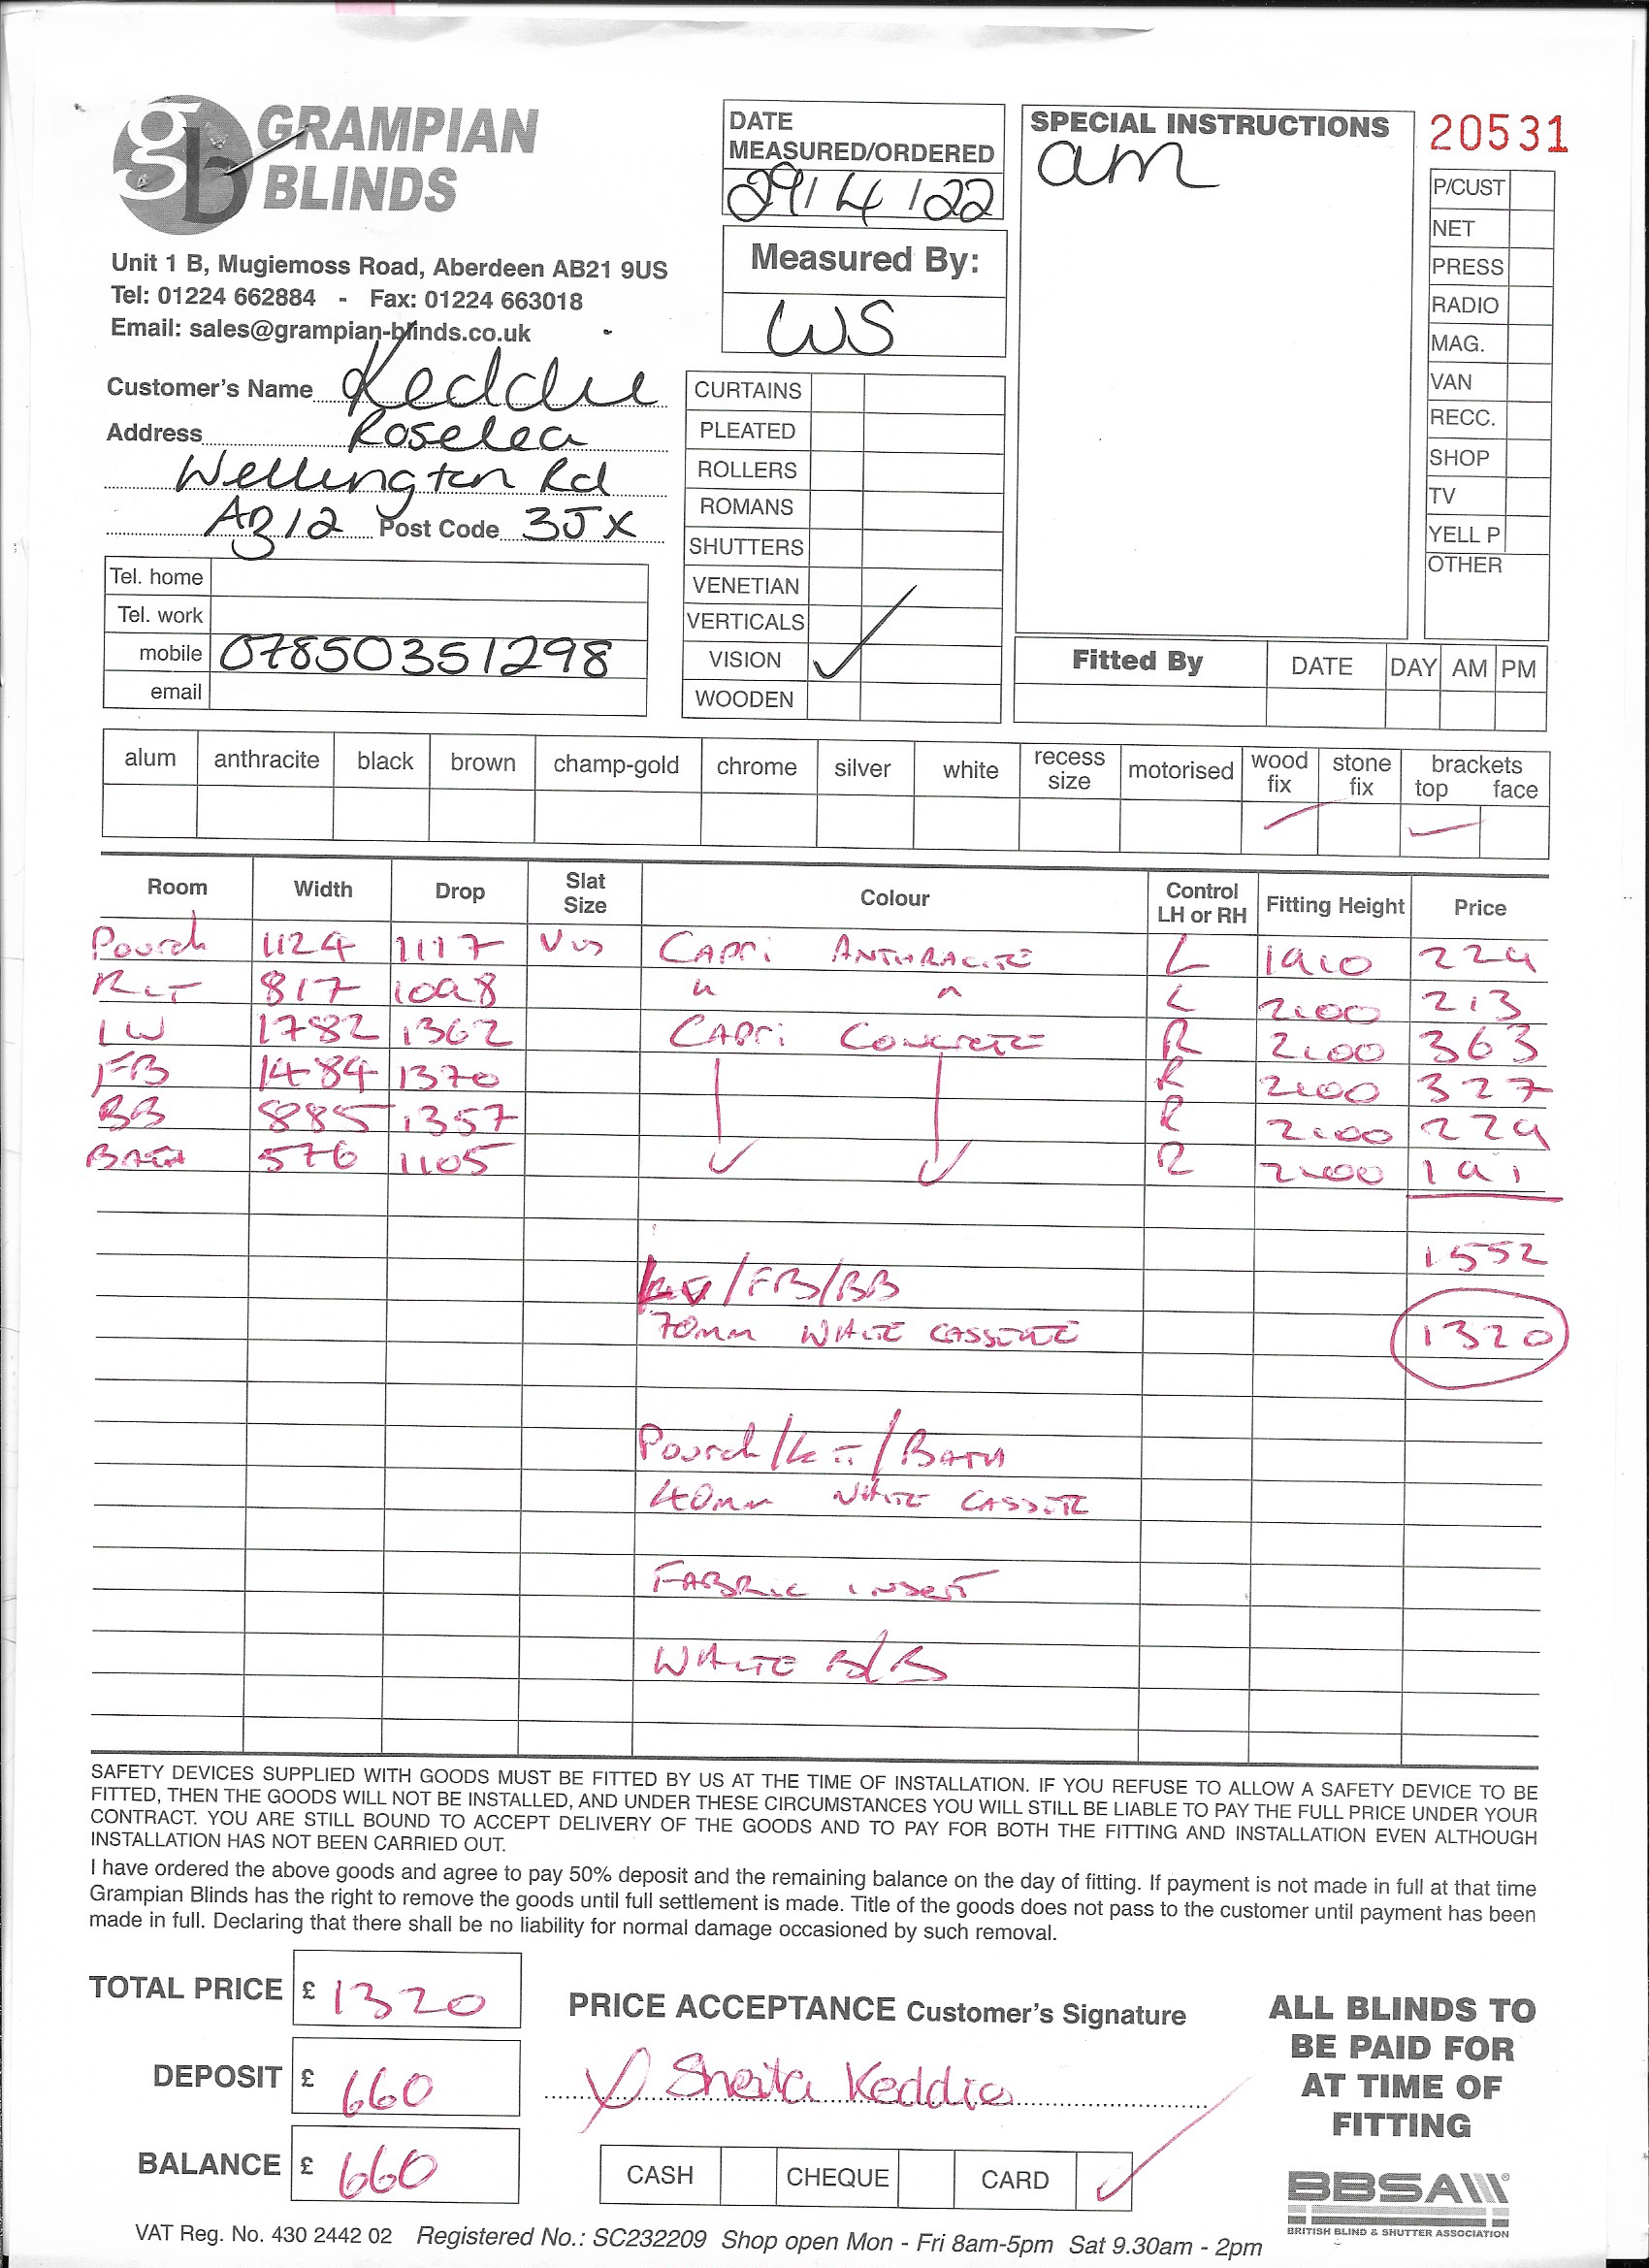 gb GRAMPIAN BLINDS
Unit 1 B, Mugiemoss Road, Aberdeen AB21 9US
Tel: 01224 662884 - Fax: 01224 663018
Email: sales@grampian-blinds.co.uk
Customer's Name Keddie
Address Roselea
Wellington Rd
AB12 Post Code 3JX
Tel. home
Tel. work
mobile 07850351298
email
DATE MEASURED/ORDERED
29/4/22
Measured By:
WS
CURTAINS
PLEATED
ROLLERS
ROMANS
SHUTTERS
VENETIAN
VERTICALS
VISION ✓
WOODEN
SPECIAL INSTRUCTIONS
am
20531
P/CUST
NET
PRESS
RADIO
MAG.
VAN
RECC.
SHOP
TV
YELL P
OTHER
Fitted By DATE DAY AM PM
alum anthracite black brown champ-gold chrome silver white recess size motorised wood fix stone fix brackets top face
✓ ✓
Room Width Drop Slat Size Colour Control LH or RH Fitting Height Price
Pourch 1124 1117 Vis CAPRi ANTHRACITE L 1910 229
817 1098 " " L 2100 213
1782 1362 CAPRi CONCRETE R 2100 363
FB 1484 1370 R 2100 327
BB 885 1357 R 2100 229
BATH 576 1105 R 2100 191
1552
/FB/BB
70mm WHITE CASSETTE 1320
Pourch/KIT/BATH
40mm WHITE CASSETTE
FABRIC INSERT
WHITE B/B
SAFETY DEVICES SUPPLIED WITH GOODS MUST BE FITTED BY US AT THE TIME OF INSTALLATION. IF YOU REFUSE TO ALLOW A SAFETY DEVICE TO BE
FITTED, THEN THE GOODS WILL NOT BE INSTALLED, AND UNDER THESE CIRCUMSTANCES YOU WILL STILL BE LIABLE TO PAY THE FULL PRICE UNDER YOUR
CONTRACT. YOU ARE STILL BOUND TO ACCEPT DELIVERY OF THE GOODS AND TO PAY FOR BOTH THE FITTING AND INSTALLATION EVEN ALTHOUGH
INSTALLATION HAS NOT BEEN CARRIED OUT.
I have ordered the above goods and agree to pay 50% deposit and the remaining balance on the day of fitting. If payment is not made in full at that time
Grampian Blinds has the right to remove the goods until full settlement is made. Title of the goods does not pass to the customer until payment has been
made in full. Declaring that there shall be no liability for normal damage occasioned by such removal.
TOTAL PRICE £ 1320
DEPOSIT £ 660
BALANCE £ 660
PRICE ACCEPTANCE Customer's Signature
X Sheila Keddie
CASH CHEQUE CARD ✓
ALL BLINDS TO
BE PAID FOR
AT TIME OF
FITTING
BBSA
BRITISH BLIND & SHUTTER ASSOCIATION
VAT Reg. No. 430 2442 02 Registered No.: SC232209 Shop open Mon - Fri 8am-5pm Sat 9.30am - 2pm